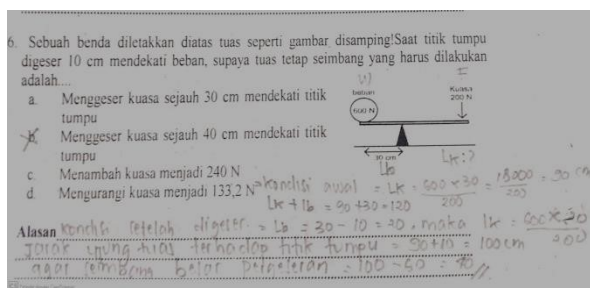 6. Sebuah benda diletakkan diatas tuas seperti gambar disamping!Saat titik tumpu
digeser 10 cm mendekati beban, supaya tuas tetap seimbang yang harus dilakukan
adalah....
a. Menggeser kuasa sejauh 30 cm mendekati titik
tumpu
b. Menggeser kuasa sejauh 40 cm mendekati titik
tumpu
c. Menambah kuasa menjadi 240 N
d. Mengurangi kuasa menjadi 133,2 N
W
F
beban
Kuasa
200 N
600 N
30 cm
Lb
Lk:?
kondisi awal = Lk = 600 x 30 = 18000 = 90 cm
200 200
Lk + lb = 90 +30 = 120
Alasan kondisi setelah digeser = Lb = 30 - 10 = 20, maka lk = 600 x 20
200
Jarak ujung tuas terhadap titik tumpu = 90+10 = 100 cm
agar seimbang besar pergeseran = 100 - 60 = 40 //